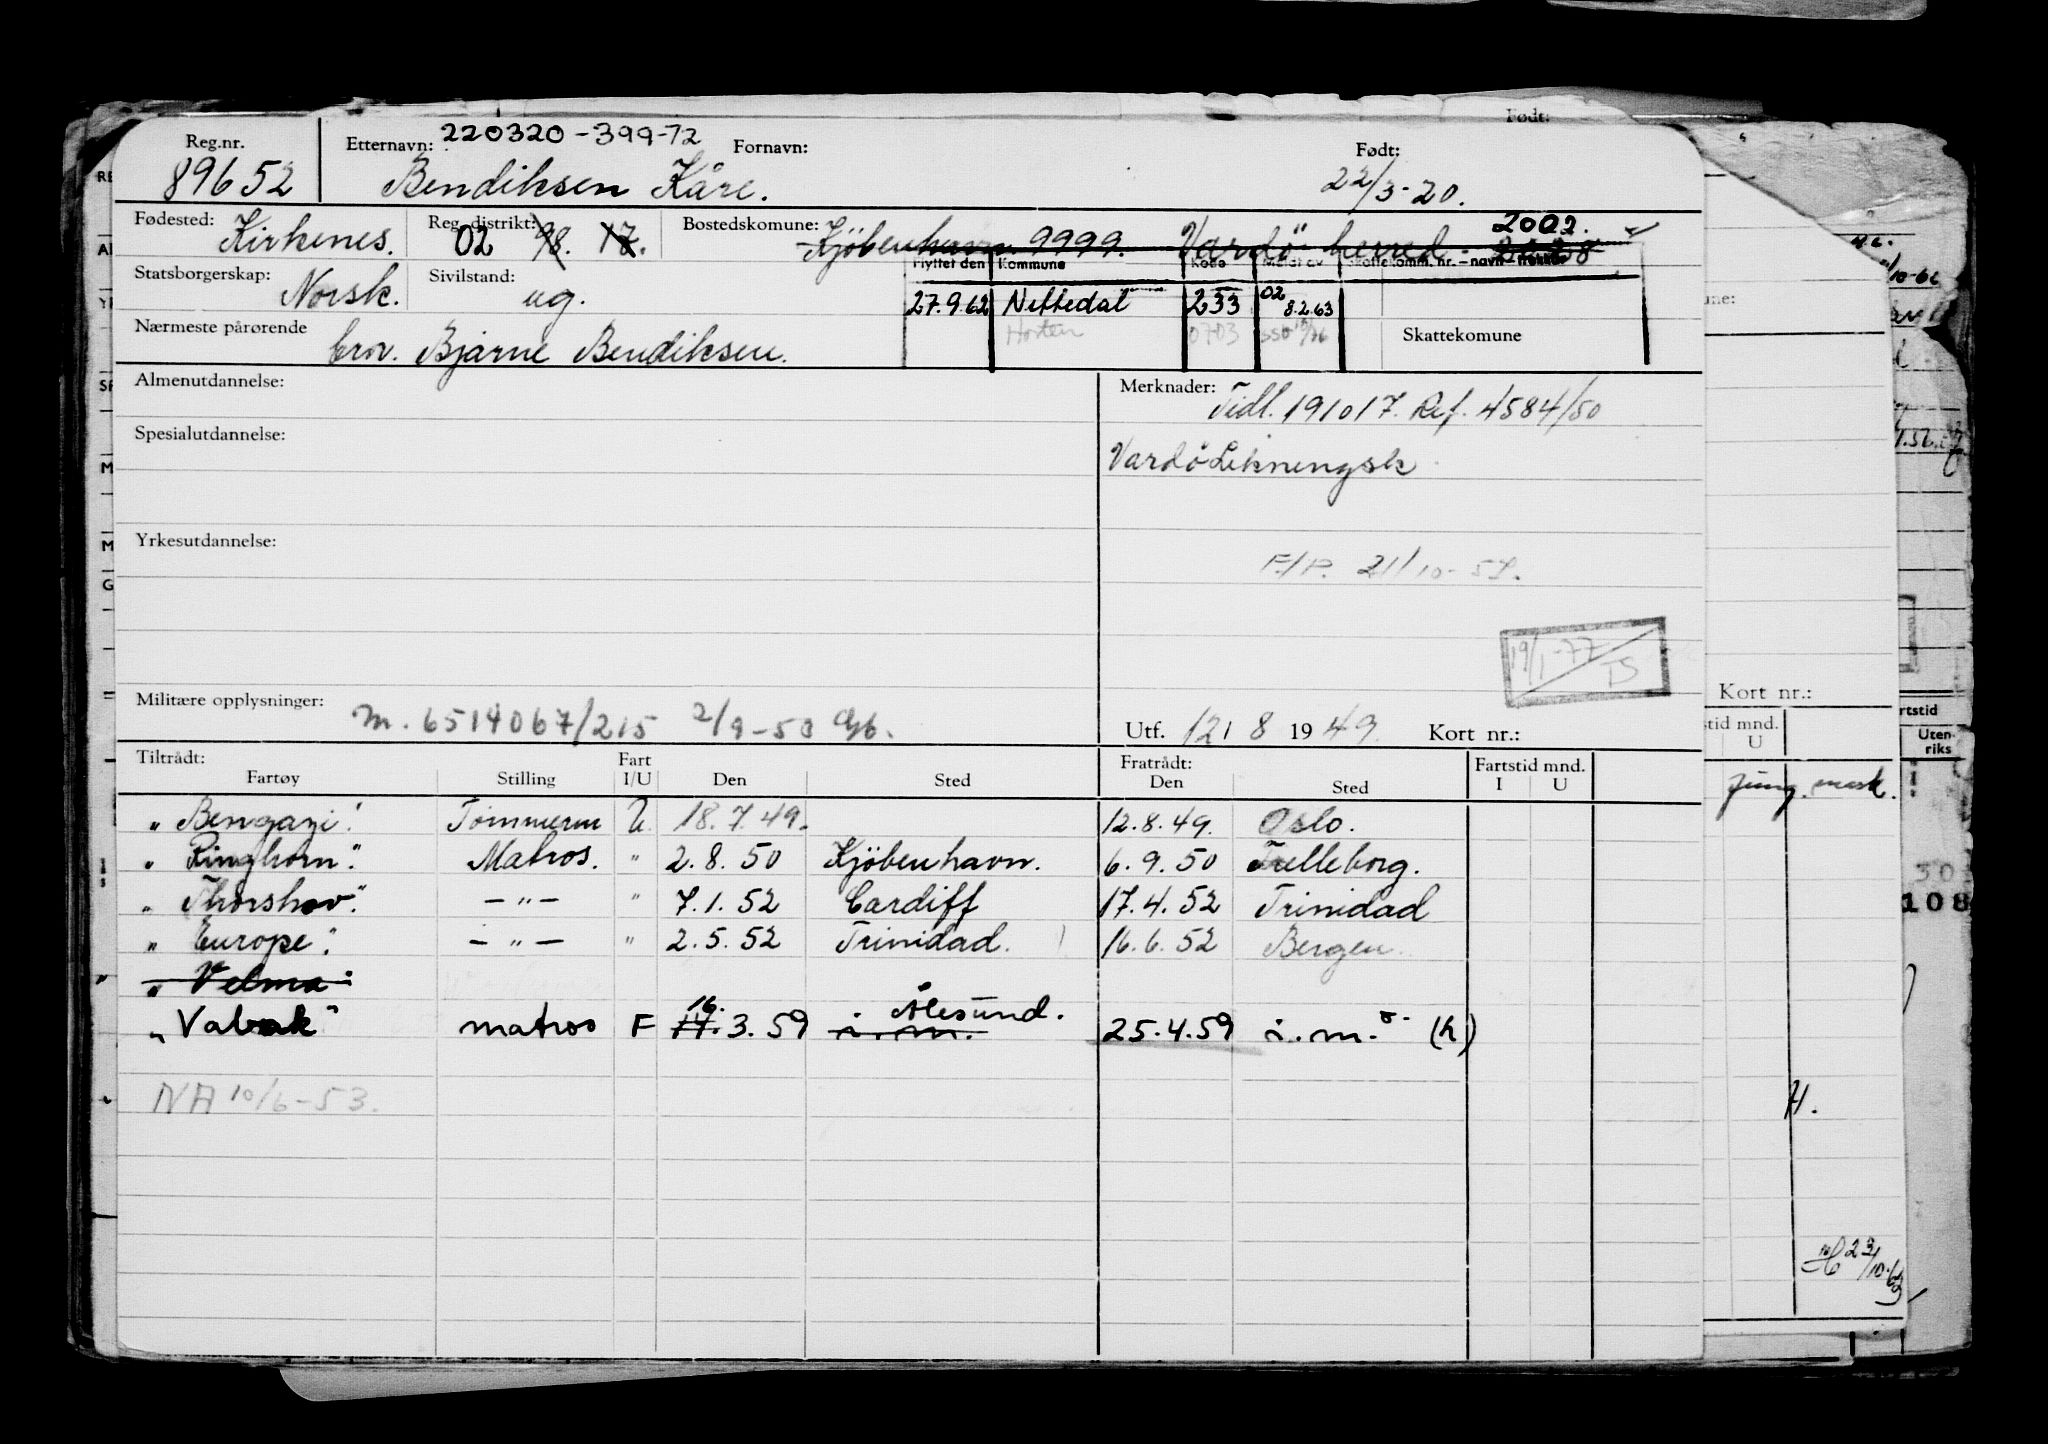 Født:
Reg.nr. Etternavn: 220320-399-72 Fornavn: Født:
89652 Bendiksen Kåre. 22/3-20.
Fødested: Kirkenes. Reg. distrikt: 02 98. 17. Bostedskomune: Kjöbenhavn 9999. Vardö herred - 2002.
Statsborgerskap: Norsk. Sivilstand: ug.
Flyttet den Kommune Kode Meldt av Skattekomm. nr. – navn – trekkes
27.9.62 Nittedal 233 02 8.2.63
Horten 0703
Nærmeste pårørende brov. Bjarne Bendiksen. Skattekomune
Almenutdannelse: Merknader: Tidl. 191017. Ref. 4584/50
Spesialutdannelse: Vardö Likningsk
Yrkesutdannelse: F/P. 21/10-57.
19/1-77 TS
Militære opplysninger: m. 6514067/215 2/9-50 Gb. Utf. 12/ 8 1949. Kort nr.:
Tiltrådt: Fratrådt: Fartstid mnd.
Fartøy Stilling Fart I/U Den Sted Den Sted I U
„ Bengazi". Tømmerm U. 18.7.49. 12.8.49. Oslo.
„ Ringhorn". Matros. " 2.8.50 Kjöbenhavn. 6.9.50 Trelleborg.
„ Thorshov". — " — " 7.1.52 Cardiff 17.4.52 Trinidad
„ Europe". — " — " 2.5.52 Trinidad. 16.6.52 Bergen.
„ Velma"
„ Valvak" matros F 16. 14.3.59 i.m. Ålesund. 25.4.59 i.m. (h)
NA 10/6-53.
Kort nr.:
tid mnd.
U
rtstid
Uten-
riks
Jung. mask.
30
108
H.
23/10-62